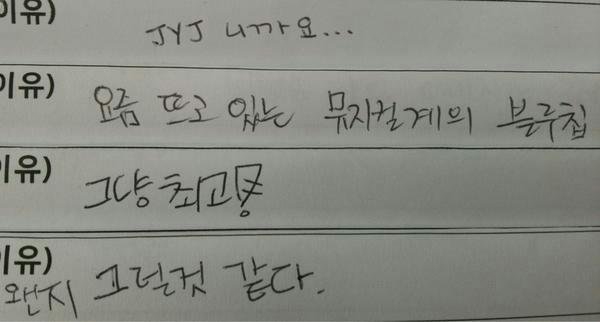 이유)
JYJ 니까요...
이유)
요즘 뜨고 있는 뮤지컬계의 블루칩
이유)
그냥 최고
이유)
왠지 그럴것 같다.